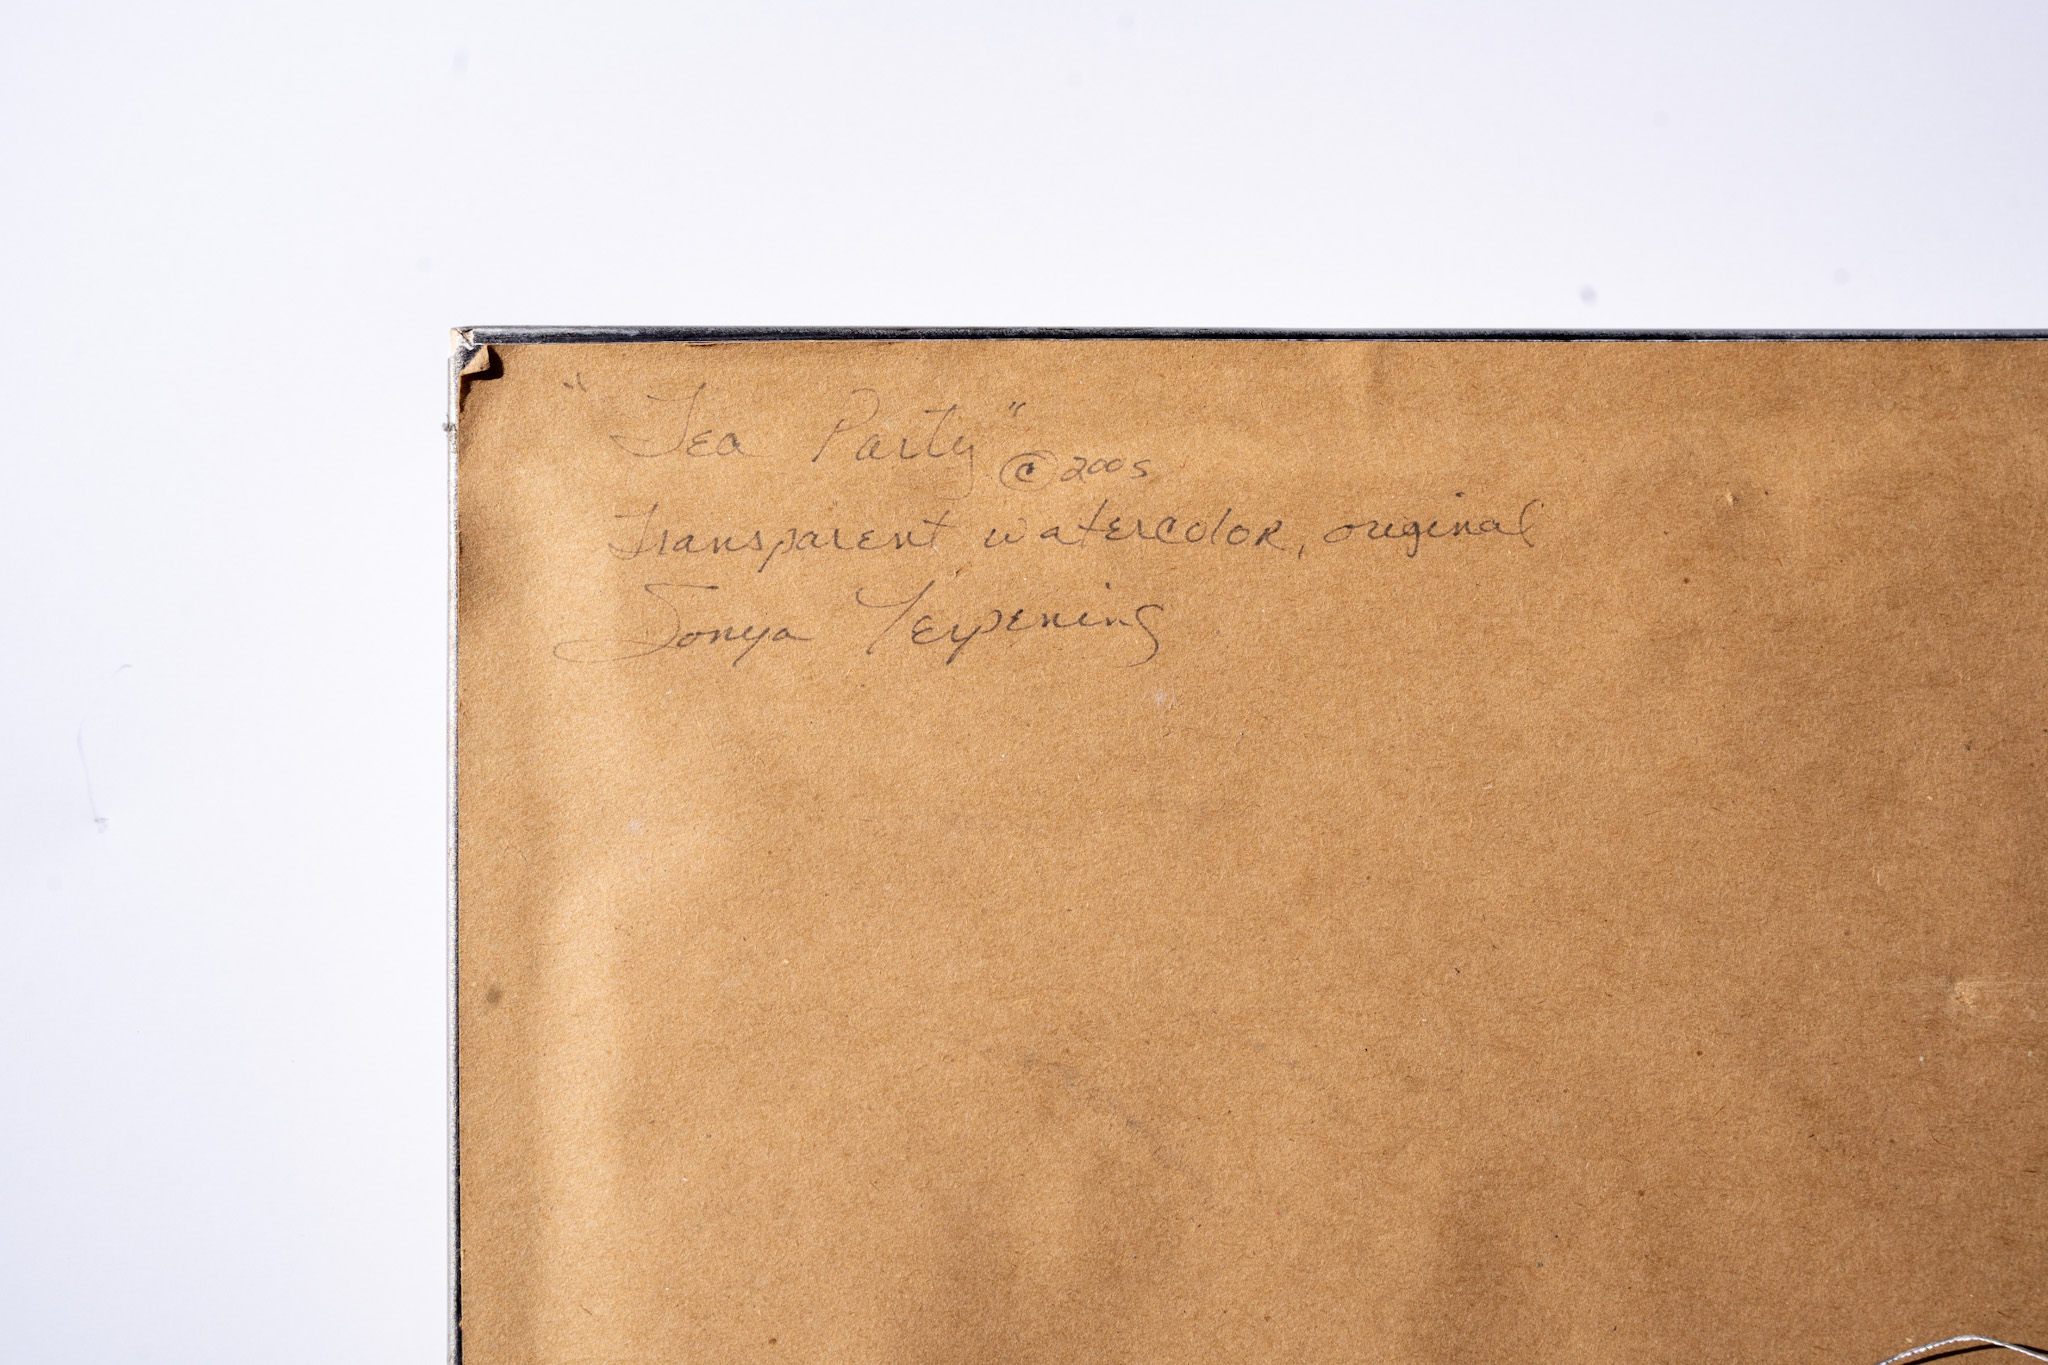 "Tea Party" © 2005
Transparent watercolor, original
Sonya Terpening